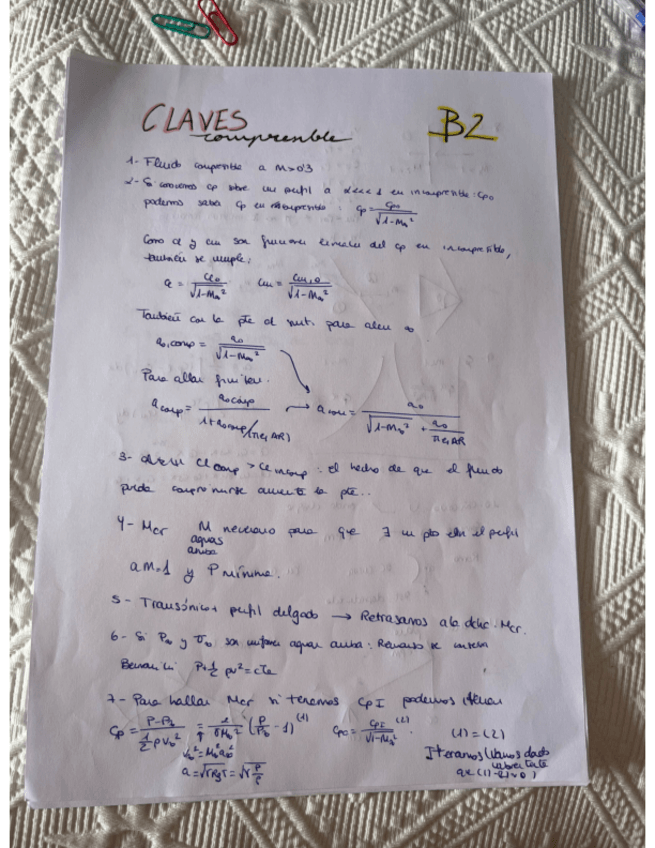 CLAVES B2
comprensible
1- Fluido compresible a M>0'3
2- Si conocemos cp sobre un perfil a α<<<1 en incompresible: cp₀
podemos saber cp en compresible: cp = cp₀ / √(1-M∞²)
Como cl y cm son funciones lineales del cp en incompresible,
también se cumple:
cl = cl₀ / √(1-M∞²) cm = cm,₀ / √(1-M∞²)
También con la pte de sust. para alas ∞
a₀,comp = a₀ / √(1-M∞²)
Para alas finitas.
a comp = a₀comp / (1+a₀comp/(πe₁AR)) → a comp = a₀ / (√(1-M∞²) + a₀/(πe₁AR))
3- cl comp > cl incomp : el hecho de que el fluido
pueda comprimirse aumenta la pte..
4- Mcr M necesario para que ∃ un pto en el perfil
aguas
arriba
a M=1 y P mínima.
5- Transónico: perfil delgado → Retrasamos Mcr.
6- Si P∞ y V∞ son uniformes aguas arriba:
Bernoulli P+½ρv²=cte
7- Para hallar Mcr si tenemos CpI podemos iterar
Cp = (P-P∞) / (½ρV∞²) = 2/(γM∞²) (P/P∞ -1) (1) cp₀ = CpI / √(1-M∞²) (2) (1)=(2)
V∞²=M∞²a∞² Iteramos
a=√(γRgT)=√(γP/ρ)